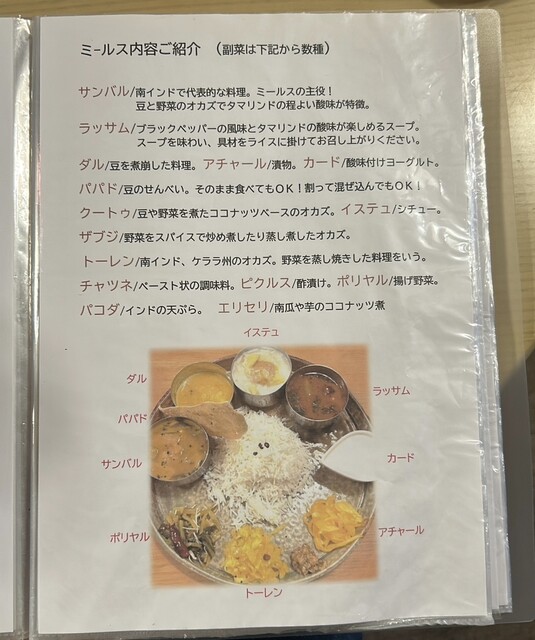 ミールス内容ご紹介 (副菜は下記から数種)
サンバル/南インドで代表的な料理。ミールスの主役！
豆と野菜のオカズでタマリンドの程よい酸味が特徴。
ラッサム/ブラックペッパーの風味とタマリンドの酸味が楽しめるスープ。
スープを味わい、具材をライスに掛けてお召し上がりください。
ダル/豆を煮崩した料理。アチャール/漬物。カード/酸味付けヨーグルト。
パパド/豆のせんべい。そのまま食べてもOK！割って混ぜ込んでもOK！
クートゥ/豆や野菜を煮たココナッツベースのオカズ。イステュ/シチュー。
ザブジ/野菜をスパイスで炒め煮したり蒸し煮したオカズ。
トーレン/南インド、ケララ州のオカズ。野菜を蒸し焼きした料理をいう。
チャツネ/ペースト状の調味料。ピクルス/酢漬け。ポリヤル/揚げ野菜。
パコダ/インドの天ぷら。 エリセリ/南瓜や芋のココナッツ煮
イステュ
ダル
ラッサム
パパド
サンバル
カード
ポリヤル
アチャール
トーレン